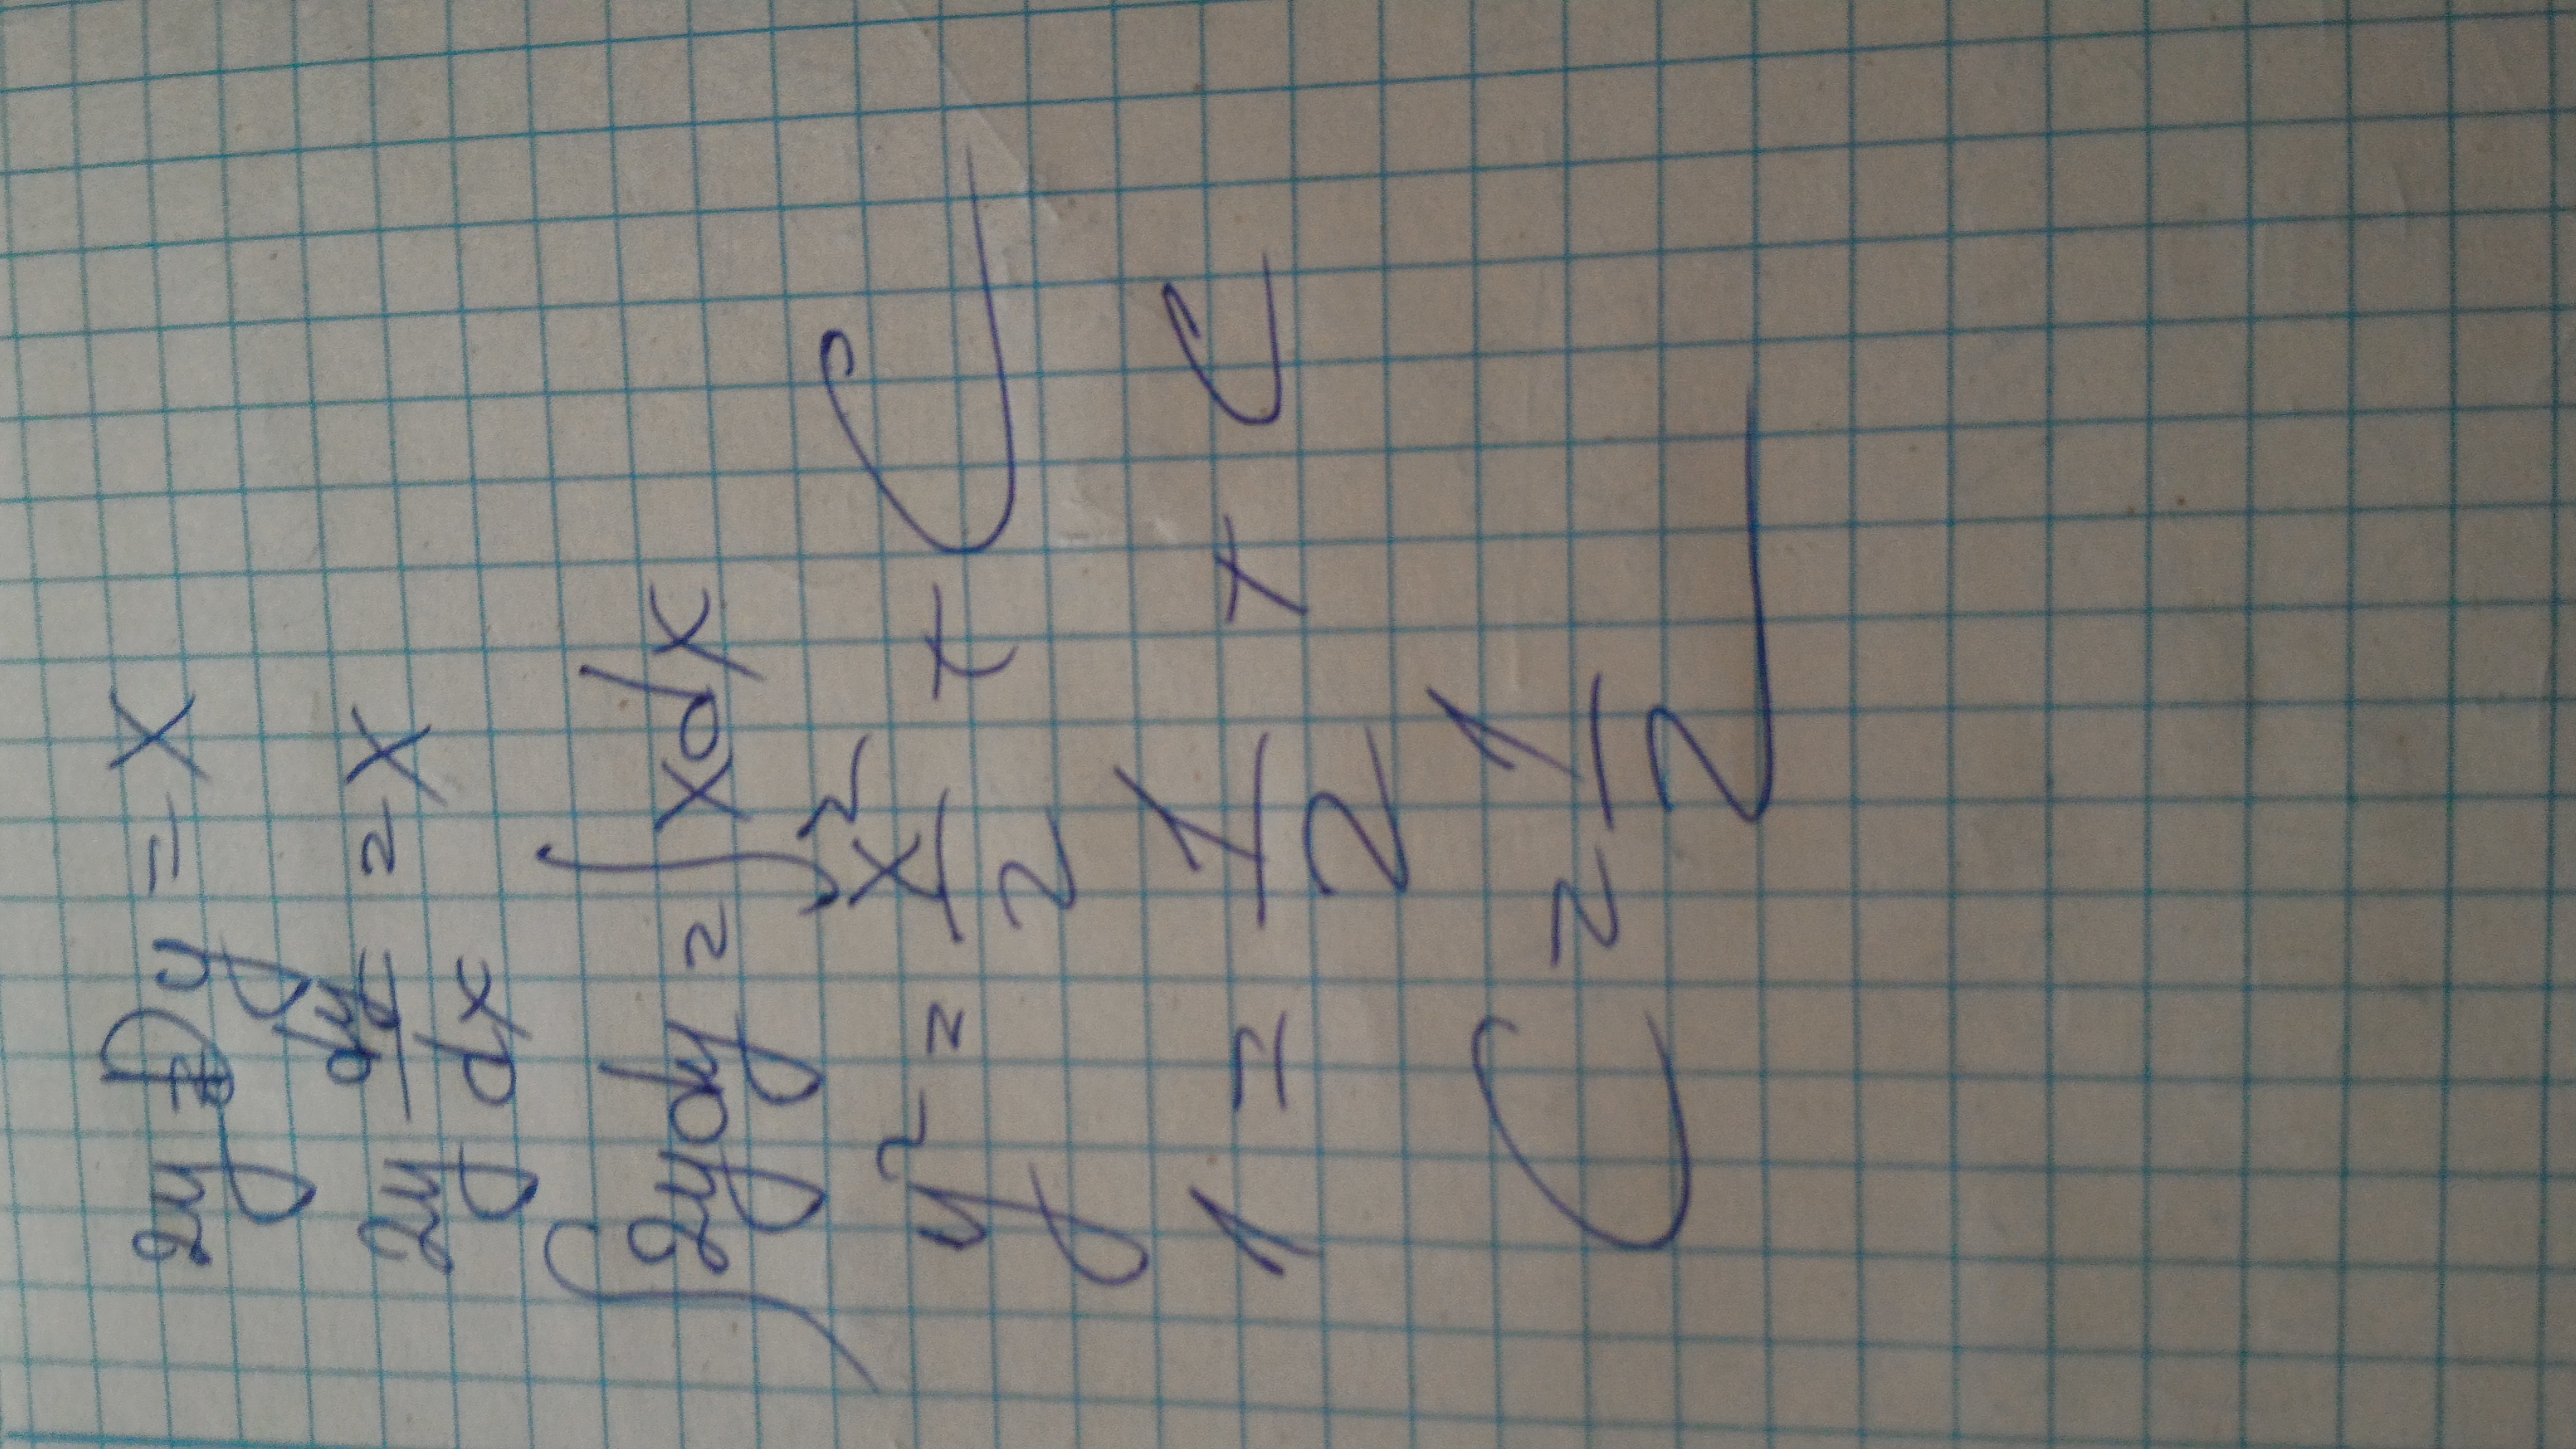 2y Dy = x
2y dy/dx = x
∫2ydy = ∫xdx
y² = x²/2 + C
1 = 1/2 + C
C = 1/2